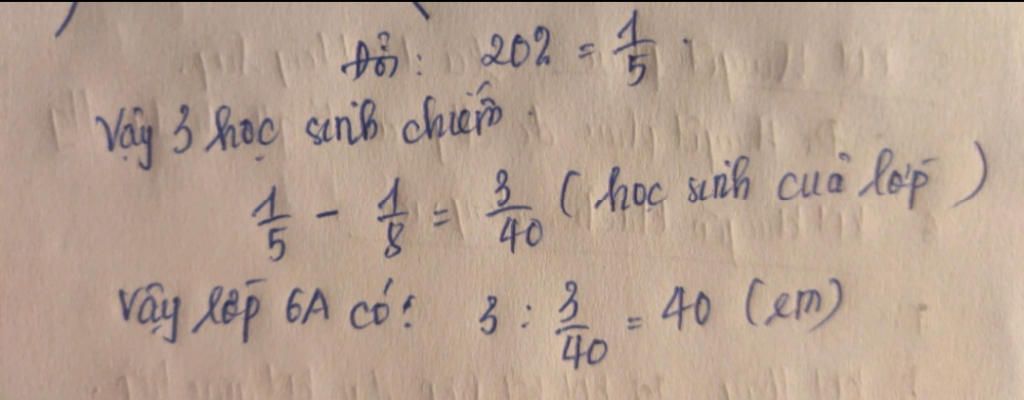 Đổi: 20% = 1/5.
Vậy 3 học sinh chiếm
1/5 - 1/8 = 3/40 (học sinh của lớp)
Vậy lớp 6A có: 3 : 3/40 = 40 (em)